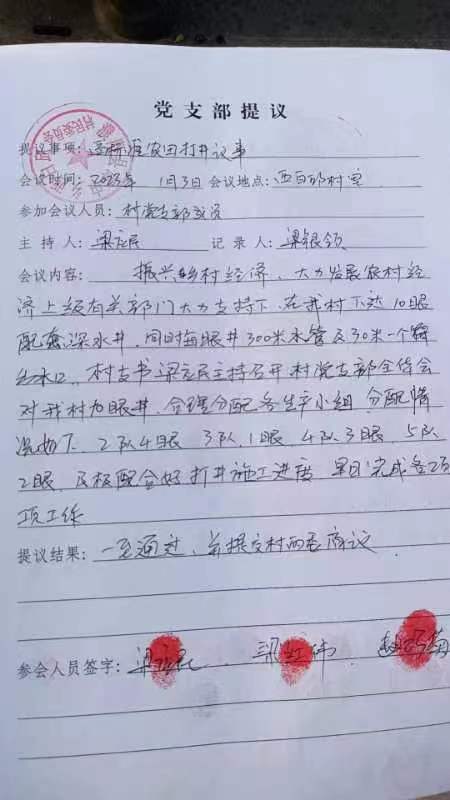 党支部提议
提议事项：高标准农田打井议事
会议时间：2023年 1月3日 会议地点：西白邱村室
参加会议人员：村党支部成员
主持人：梁应民 记录人：梁银领
会议内容： 振兴乡村经济、大力发展农村经
济上级有关部门大力支持下、在我村下达10眼
配套深水井，同时每眼井300米水管及30米一个
出水口，村支书梁应民主持召开村党支部全体会
对我村10眼井，合理分配各生产小组，分配情
况如下、2队4眼 3队1眼 4队3眼、5队
2眼、及极配合好打井施工进度 早日完成各项
项工作
提议结果：一至通过、并提交村两委商议
参会人员签字：梁应民、梁红伟、赵